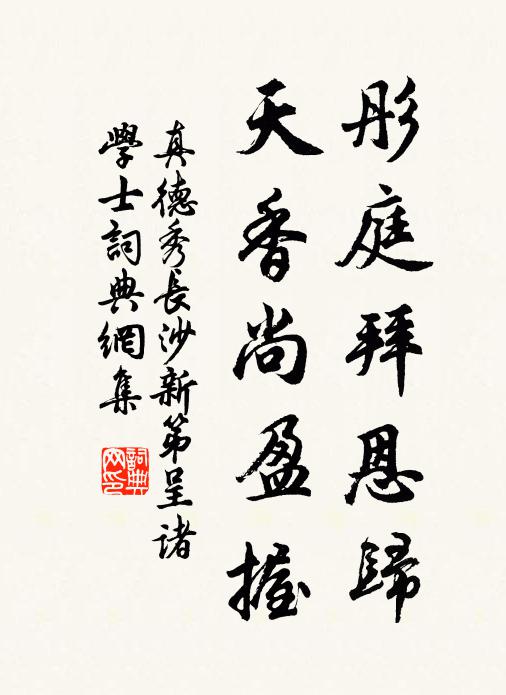 彤庭拜恩歸
天香尚盈握
真德秀長沙新第呈諸
學士詞典網集
詞典网印